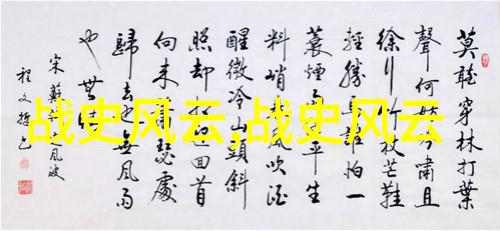 战史风云,战史风云
莫聽穿林打葉
聲何嘯且
徐行竹杖芒鞋
輕勝誰怕一
蓑煙雨平生
料峭風吹酒
醒微冷山頭斜
照却迎回首
向来瑟處
歸去也無風雨
也無
宋蘇風波
程文